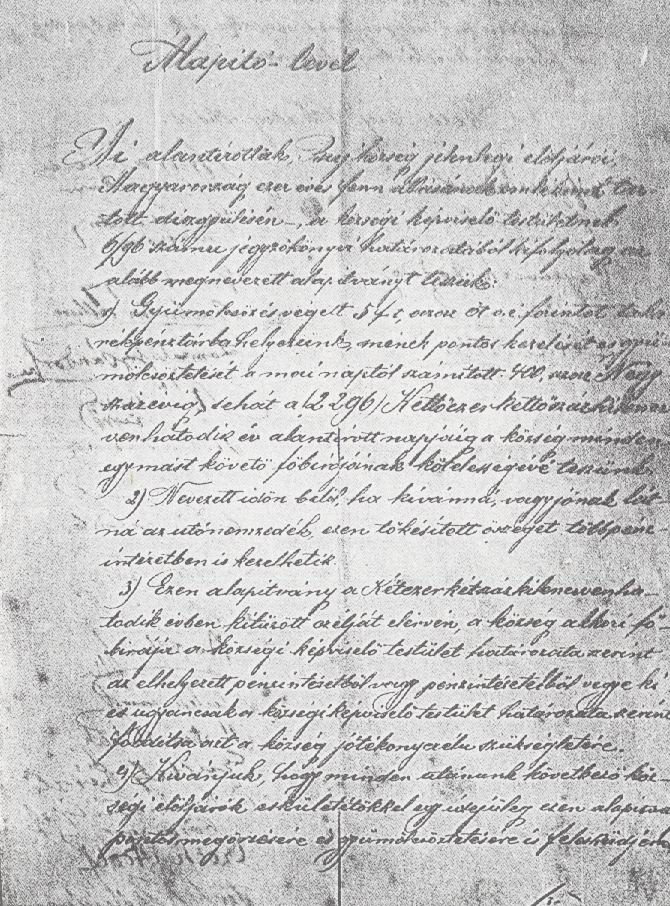 Alapitó-levél
Mi alantirottak, község jelenlegi elöljárói,
Magyarország ezer éves fenn állásának emlékére tar-
tott diszgyülésén, a községi képviselő testületnek
6/96 számu jegyzőkönyvi határozatából kifolyólag az
alább megnevezett alapitványt teszük:
1) Gyümölcsözés végett 5 frt azaz öt o.é. forintot taka-
rékpénztárba helyezünk, minek pontos kezelését és gyü-
mölcsöztetését a mai naptól számitott 400, azaz Négy-
száz évig, tehát a (2296) Kettőezerkettőszázkilenc-
venhatodik év alantirott napjáig a község minden
egymást követő főbirójának kötelességévé teszünk.
2) Nevezett időn belől, ha kivánná, vagy jónak lát-
ná az utónemzedék, ezen tőkésitett összeget több pénz
intézetben is kezelhetik.
3) Ezen alapitvány a Kétezerkétszázkilencvenha-
todik évben kitüzött czélját elérvén, a község akkori fő-
birája a községi képviselő testület határozata szerint
az elhelyezett pénzintézetből vagy pénzintézetekből vegye ki
és ugyancsak a községi képviselő testület határozata szerint
forditsa azt a község jótékonyczélu szükségletére.
4) Kivánjuk, hogy minden utánunk következő köz-
ségi elöljárók eskületétökkel egy idejüleg ezen alapit-
megőrzésére és gyümölcsöztetésére is felesküdjenek